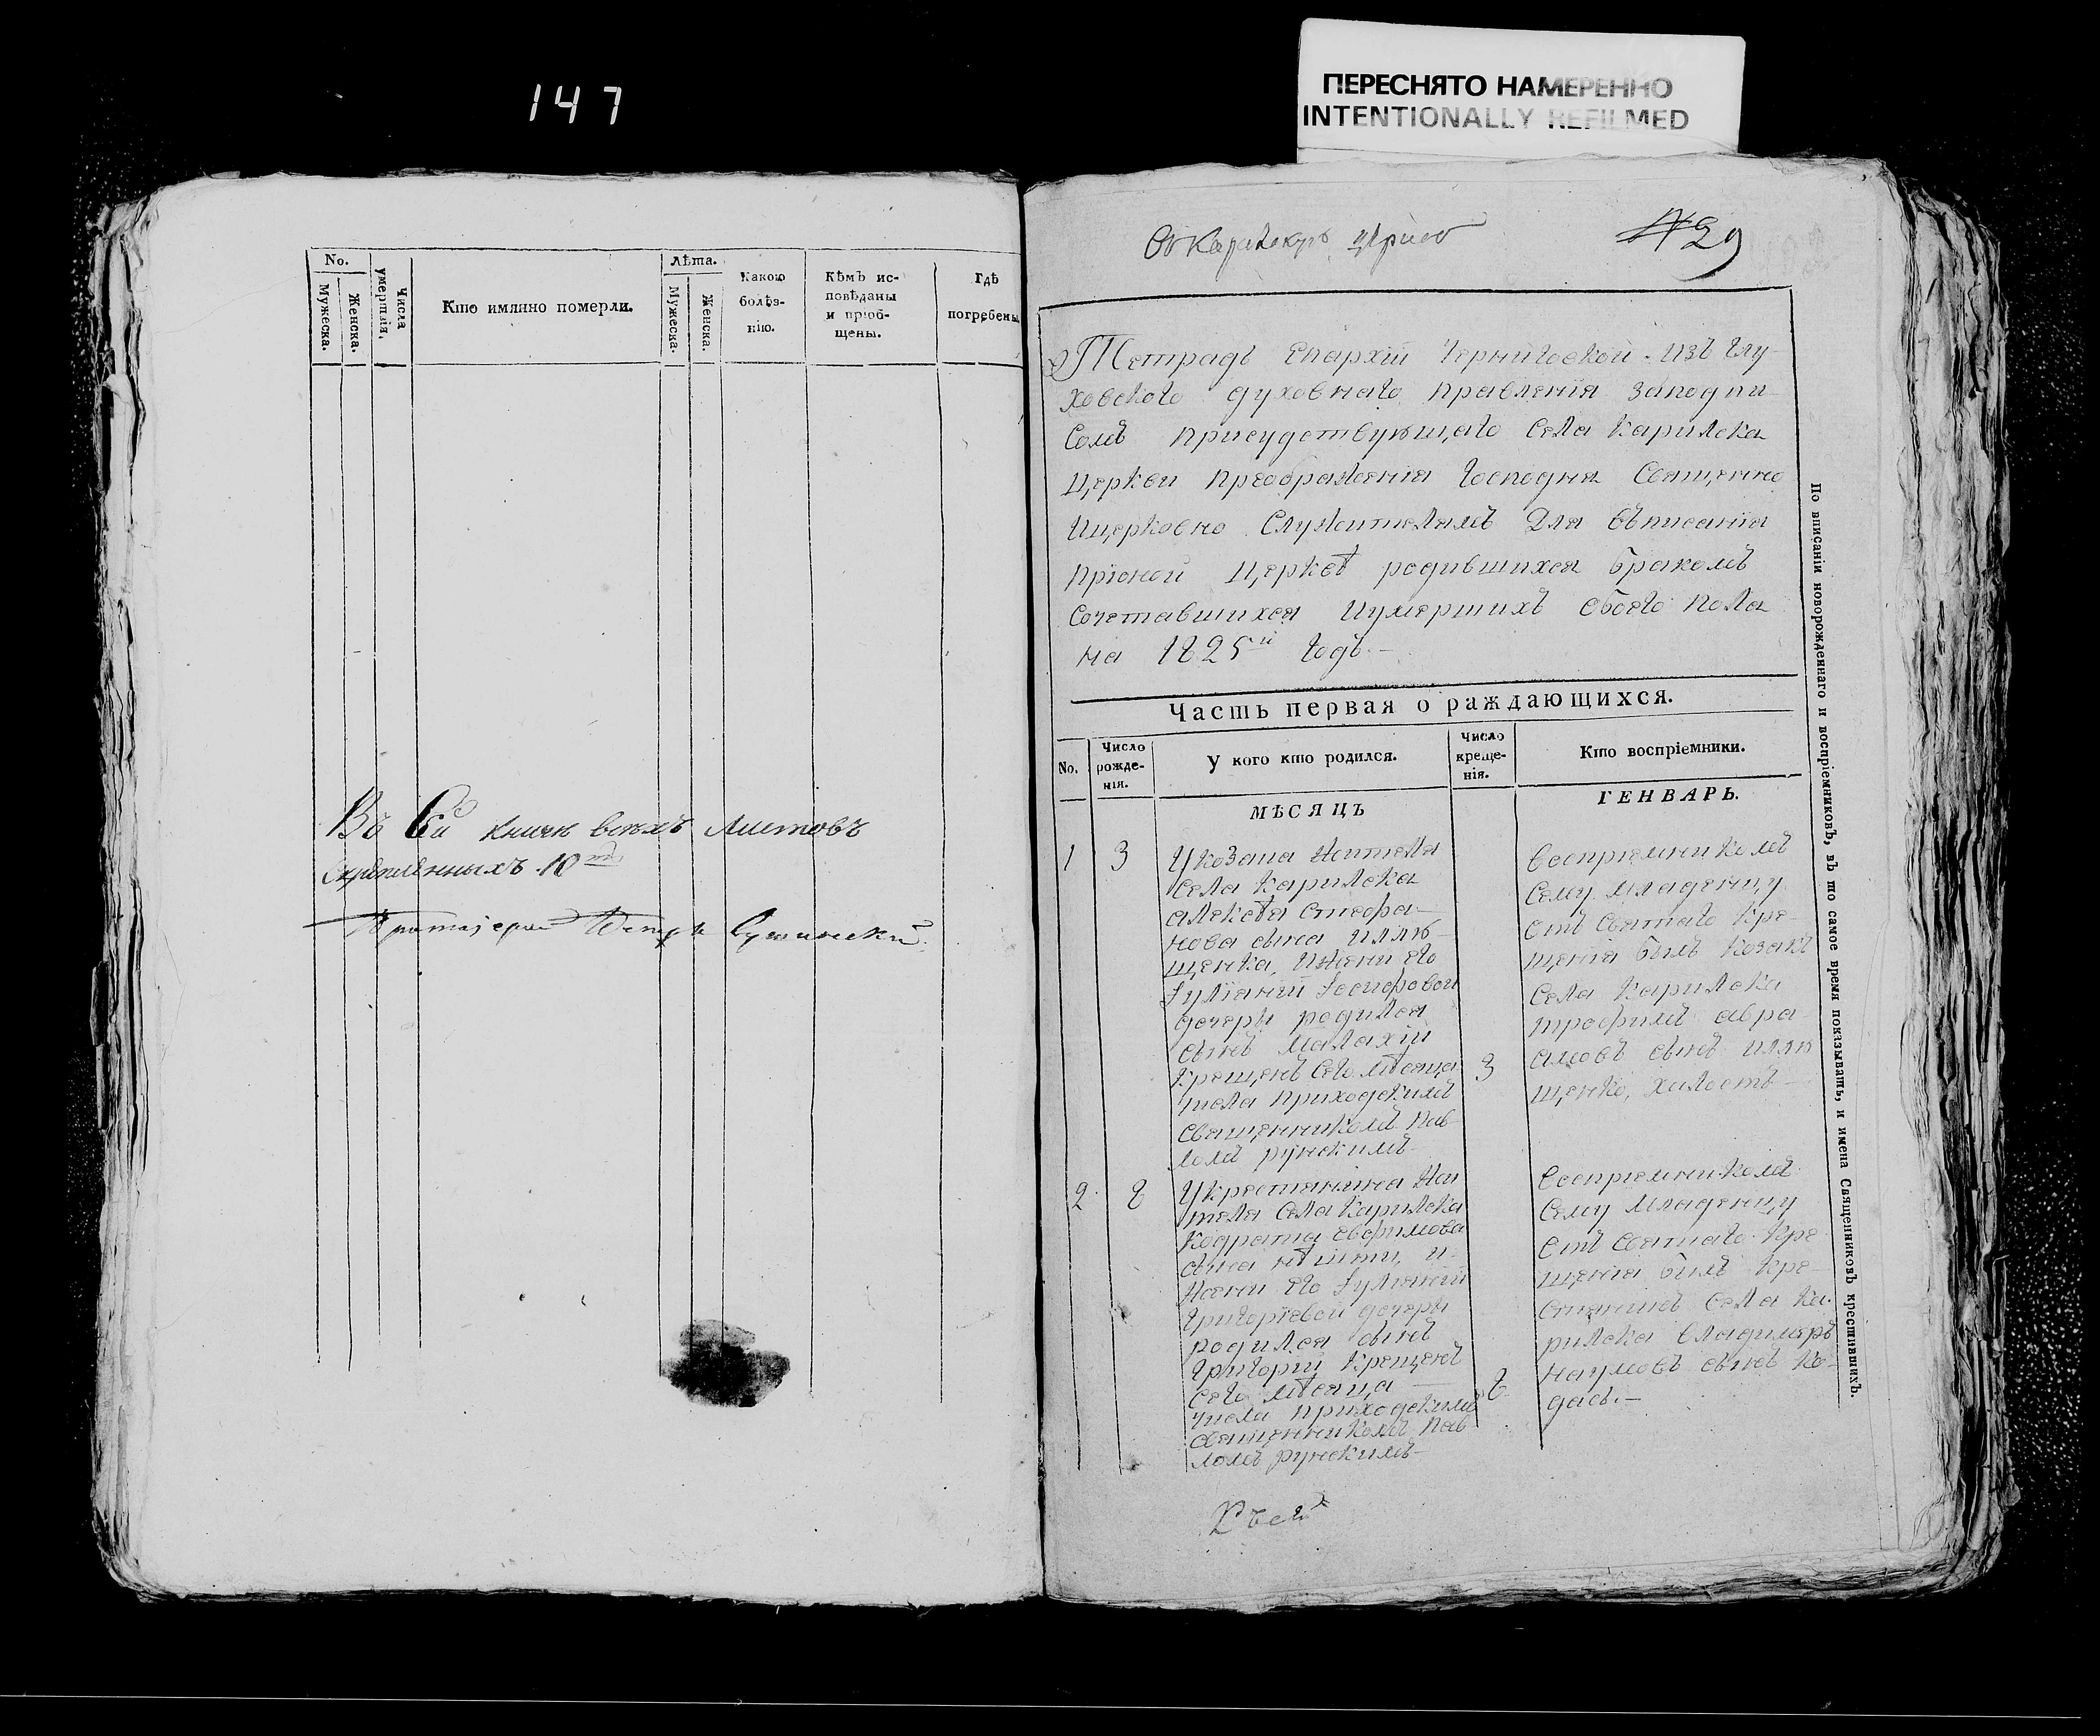 147
ПЕРЕСНЯТО НАМЕРЕННО
INTENTIONALLY REFILMED
No.
Мужеска.
Женска.
Числа умершія.
Кто имянно померли.
Лѣта.
Мужеска.
Женска.
Какою
болѣз-
нію.
Кѣмъ ис-
повѣданы
и пріоб-
щены.
Гдѣ
погребены
Въ сей книги всѣхъ листовъ
скрѣпленныхъ 10
Протоіерей
№ 29
Тетрадь Епархіи Черниговской изъ Глу-
ховского духовнаго правленія заподпи-
сомъ присудствующаго Села Карилска
Церкви Преображенія Господня Священно
Ицерковно Служителямъ Для въписанія
приной церквѣ родившихся бракомъ
сочетавшихся иумершихъ обоего пола
на 1825й годъ.-
Часть первая о раждающихся.
No.
Число
рожде-
нія.
У кого кто родился.
Число
креще-
нія.
Кто воспріемники.
МѢСЯЦЪ
ГЕНВАРЬ.
1 3
Укозака жителя
села Карилска
алексѣя стефа-
нова сына илли-
щенка, ижени его
Іуліяній Іосифовой
дочери родился
сынъ малахій
крещенъ сего мѣсяца 3
числа приходскимъ
священникомъ пав-
ломъ рунскимъ-
воспріемникомъ
сему младенцу
отъ святаго кре-
щенія былъ козакъ
села карилска
трофимъ авра-
амовъ сынъ илли
щенко, халостъ-
2 8
Укрестянина жи
теля села карилска
кодрата евфимова
сына и-
жени его Іуліяній
григоріевой дочери
родился сынъ
григорій крещенъ
сего мѣсяца 8
числа приходскимъ
священникомъ пав
ломъ рунскимъ-
воспріемникомъ
сему младенцу
отъ святаго кре
щенія былъ кре-
стянинъ села ка-
рилска владимеръ
наумовъ сынъ ко-
дась.-
По вписаніи новорожденнаго и воспріемниковъ, въ то самое время показывать, и имена Священниковъ крестившихъ.